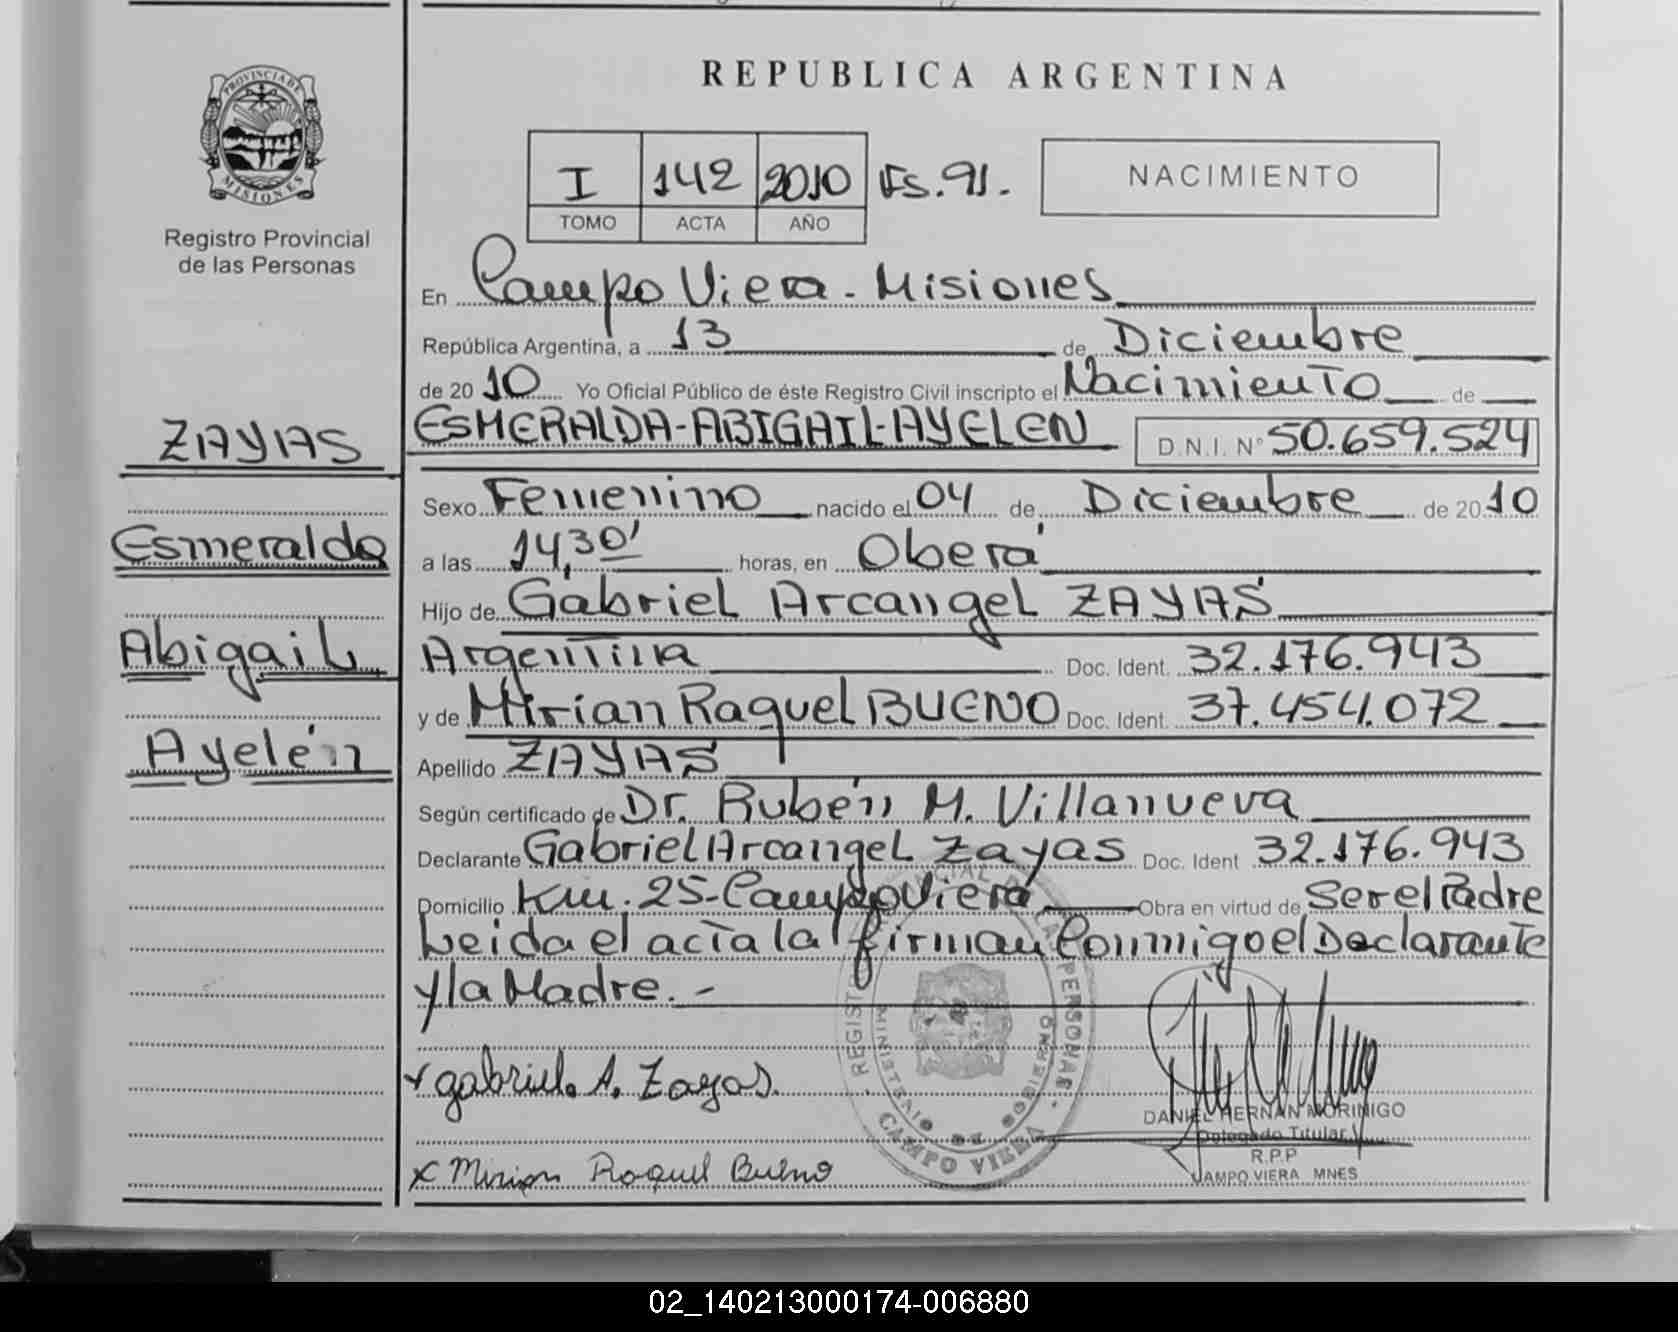 REPUBLICA ARGENTINA
PROVINCIA DE MISIONES
Registro Provincial
de las Personas
I 142 2010 Fs. 91.
TOMO ACTA AÑO
NACIMIENTO
En Campo Viera - Misiones
República Argentina, a 13 de Diciembre
de 2010 Yo Oficial Público de éste Registro Civil inscripto el Nacimiento de
ESMERALDA-ABIGAIL-AYELEN D.N.I. N° 50.659.524
ZAYAS
Esmeralda
Abigail
Ayelén
Sexo Femenino nacido el 04 de Diciembre de 2010
a las 14,30' horas, en Oberá
Hijo de Gabriel Arcangel ZAYAS
Argentina Doc. Ident. 32.176.943
y de Mirian Raquel BUENO Doc. Ident. 37.454.072
Apellido ZAYAS
Según certificado de Dr. Rubén M. Villanueva
Declarante Gabriel Arcangel Zayas Doc. Ident 32.176.943
Domicilio Km. 25-Campo Viera Obra en virtud de Ser el Padre
Leida el acta la firman Conmigo el Declarante
y la Madre. -
x gabriel. A. Zayas.
x Mirian Raquel Bueno
REGISTRO PROVINCIAL DE LAS PERSONAS
MINISTERIO DE GOBIERNO
CAMPO VIERA
DANIEL HERNAN MORINIGO
Delegado Titular
R.P.P
CAMPO VIERA MNES
02_140213000174-006880